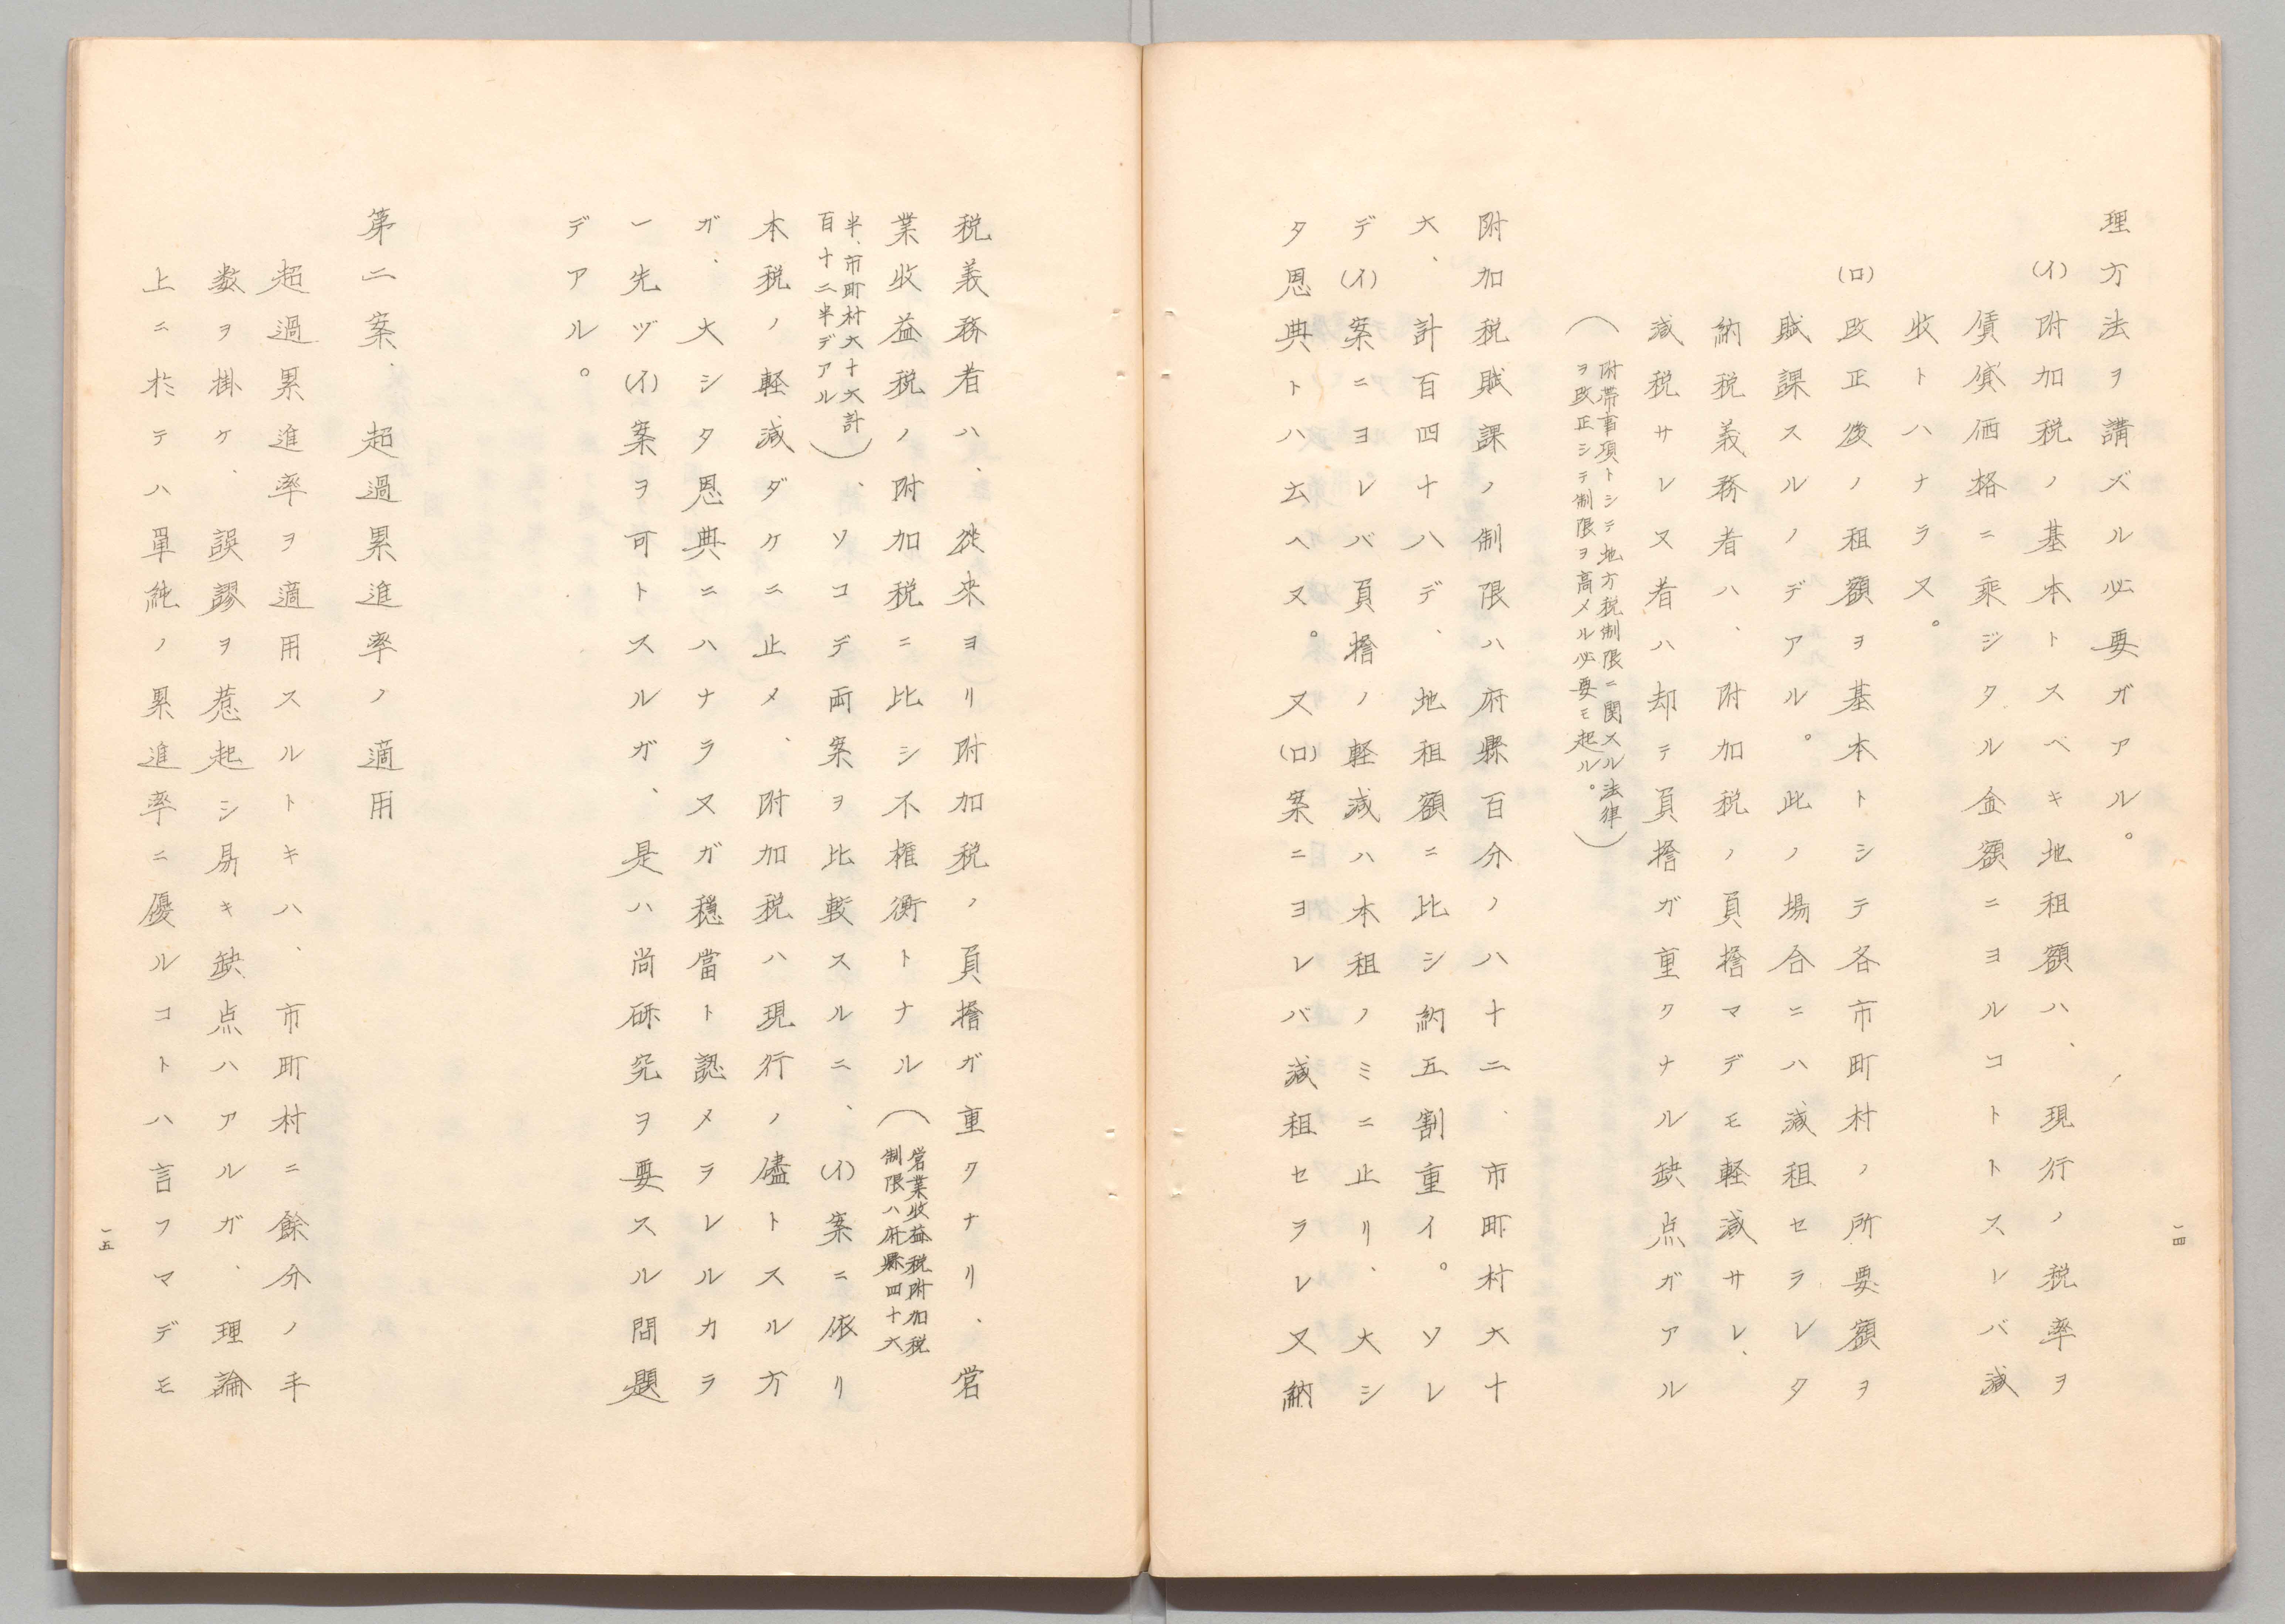 理方法ヲ講ズル必要ガアル。
(イ)附加税ノ基本トスベキ地租額ハ、現行ノ税率ヲ
賃貸価格ニ乗ジタル金額ニヨルコトトスレバ減
收トハナラヌ。
(ロ)改正後ノ租額ヲ基本トシテ各市町村ノ所要額ヲ
賦課スルノデアル。此ノ場合ニハ減租セラレタ
納税義務者ハ、附加税ノ負擔マデモ軽減サレ、
減税サレヌ者ハ却テ負擔ガ重クナル缺点ガアル
(附帯事項トシテ地方税制限ニ関スル法律
ヲ改正シテ制限ヲ高メル必要モ起ル。)
附加税賦課ノ制限ハ府縣百分ノ八十二、市町村六十
六、計百四十八デ、地租額ニ比シ約五割重イ。ソレ
デ(イ)案ニヨレバ負擔ノ軽減ハ本租ノミニ止リ、大シ
タ恩典トハ云ヘヌ。又(ロ)案ニヨレバ減租セラレヌ納
一四
税義務者ハ、従来ヨリ附加税ノ負擔ガ重クナリ、営
業收益税ノ附加税ニ比シ不権衡トナル(営業收益税附加税
制限ハ府縣四十六
半、市町村六十六計
百十二半デアル)、ソコデ両案ヲ比較スルニ、(イ)案ニ依リ
本税ノ軽減ダケニ止メ、附加税ハ現行ノ儘トスル方
ガ、大シタ恩典ニハナラヌガ穏當ト認メラレルカラ
一先ヅ(イ)案ヲ可トスルガ、是ハ尚研究ヲ要スル問題
デアル。
第二案、超過累進率ノ適用
超過累進率ヲ適用スルトキハ、市町村ニ餘分ノ手
数ヲ掛ケ、誤謬ヲ惹起シ易キ缺点ハアルガ、理論
上ニ於テハ単純ノ累進率ニ優ルコトハ言フマデモ
一五